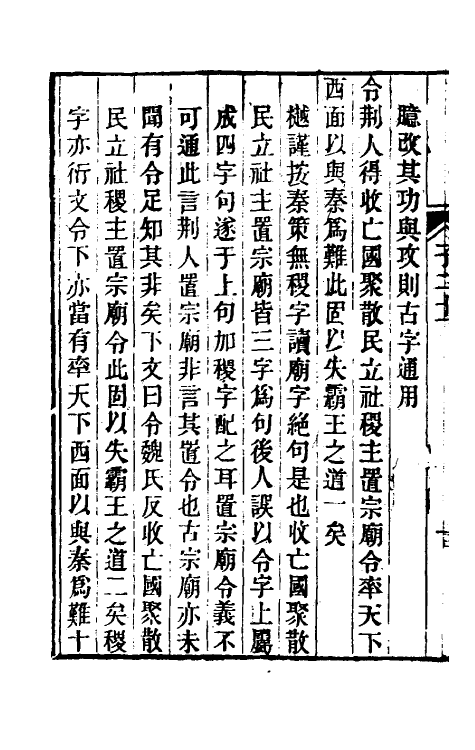 臆改其功與攻則古字通用
令荆人得收亡國聚散民立社稷主置宗廟令率天下
西面以與秦爲難此固以失霸王之道一矣
樾謹按秦策無稷字讀廟字絕句是也收亡國聚散
民立社主置宗廟皆三字爲句後人誤以令字上屬
成四字句遂于上句加稷字配之耳置宗廟令義不
可通此言荆人置宗廟非言其置令也古宗廟亦未
聞有令足知其非矣下文曰令魏氏反收亡國聚散
民立社稷主置宗廟令此固以失霸王之道二矣稷
字亦衍文令下亦當有率天下西面以與秦爲難十